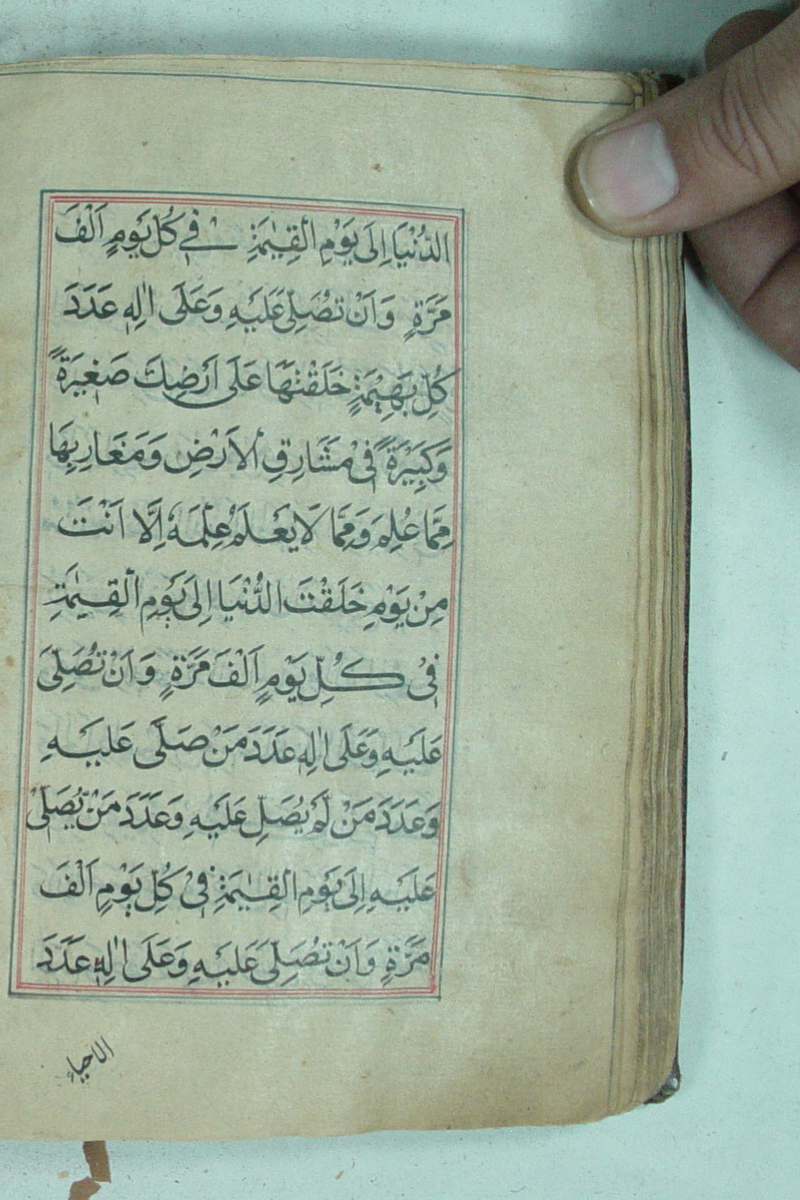 الدُّنْيَا اِلَى يَوْمِ الْقِيٰمَةِ فِي كُلِّ يَوْمٍ اَلْفَ
مَرَّةٍ وَاَنْ تُصَلِّيَ عَلَيْهِ وَعَلَى اٰلِهٖ عَدَدَ
كُلِّ بَهِيْمَةٍ خَلَقْتَهَا عَلَى اَرْضِكَ صَغِيْرَةً
وَكَبِيْرَةً فِيْ مَشَارِقِ الْاَرْضِ وَمَغَارِبِهَا
مِمَّا عُلِمَ وَمِمَّا لَا يَعْلَمُ عِلْمَهٗ اِلَّا اَنْتَ
مِنْ يَوْمِ خَلَقْتَ الدُّنْيَا اِلَى يَوْمِ الْقِيٰمَةِ
فِيْ كُلِّ يَوْمٍ اَلْفَ مَرَّةٍ وَاَنْ تُصَلِّيَ
عَلَيْهِ وَعَلَى اٰلِهٖ عَدَدَ مَنْ صَلَّى عَلَيْهِ
وَعَدَدَ مَنْ لَمْ يُصَلِّ عَلَيْهِ وَعَدَدَ مَنْ يُصَلِّيْ
عَلَيْهِ اِلَى يَوْمِ الْقِيٰمَةِ فِيْ كُلِّ يَوْمٍ اَلْفَ
مَرَّةٍ وَاَنْ تُصَلِّيَ عَلَيْهِ وَعَلَى اٰلِهٖ عَدَدَ
الاحياء